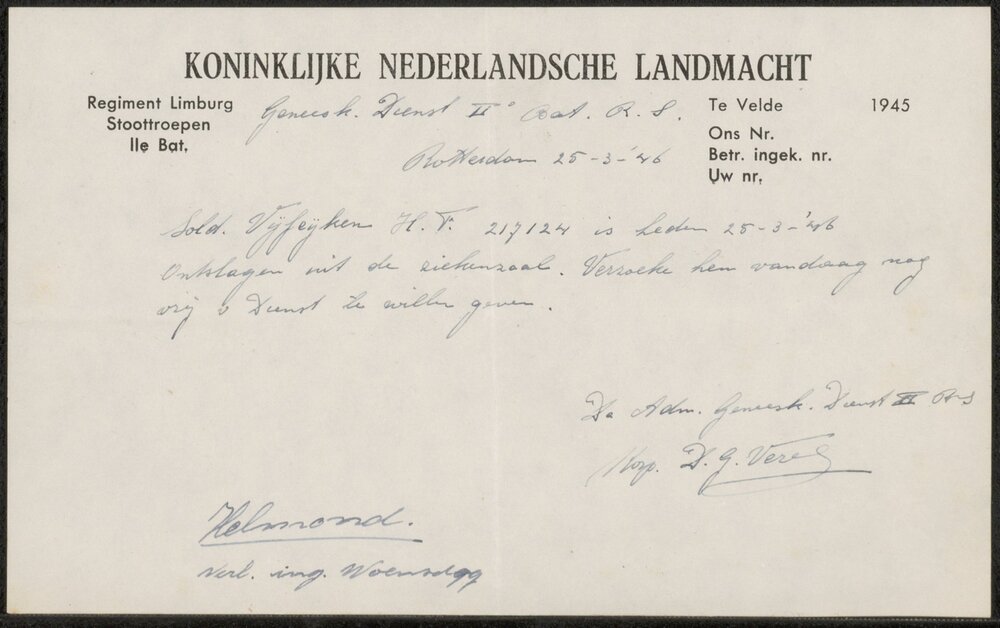 KONINKLIJKE NEDERLANDSCHE LANDMACHT
Regiment Limburg
Stoottroepen
IIe Bat.
Te Velde 1945
Ons Nr.
Betr. ingek. nr.
Uw nr.
Geneesk. Dienst II° Bat. R. S.
Rotterdam 25-3-'46
Sold. Vijfeijken H. F. 217124 is heden 25-3-'46
Ontslagen uit de ziekenzaal. Verzoeke hen vandaag nog
vrij v Dienst te willen geven.
De Adm. Geneesk. Dienst II R-S
Korp. D. G.
Helmond.
Verl. ing. Woensdag